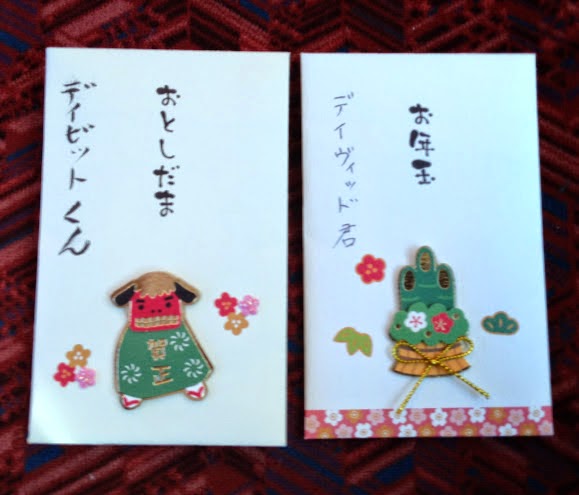 おとしだま
デイビットくん
賀正
お年玉
デイヴィッド君